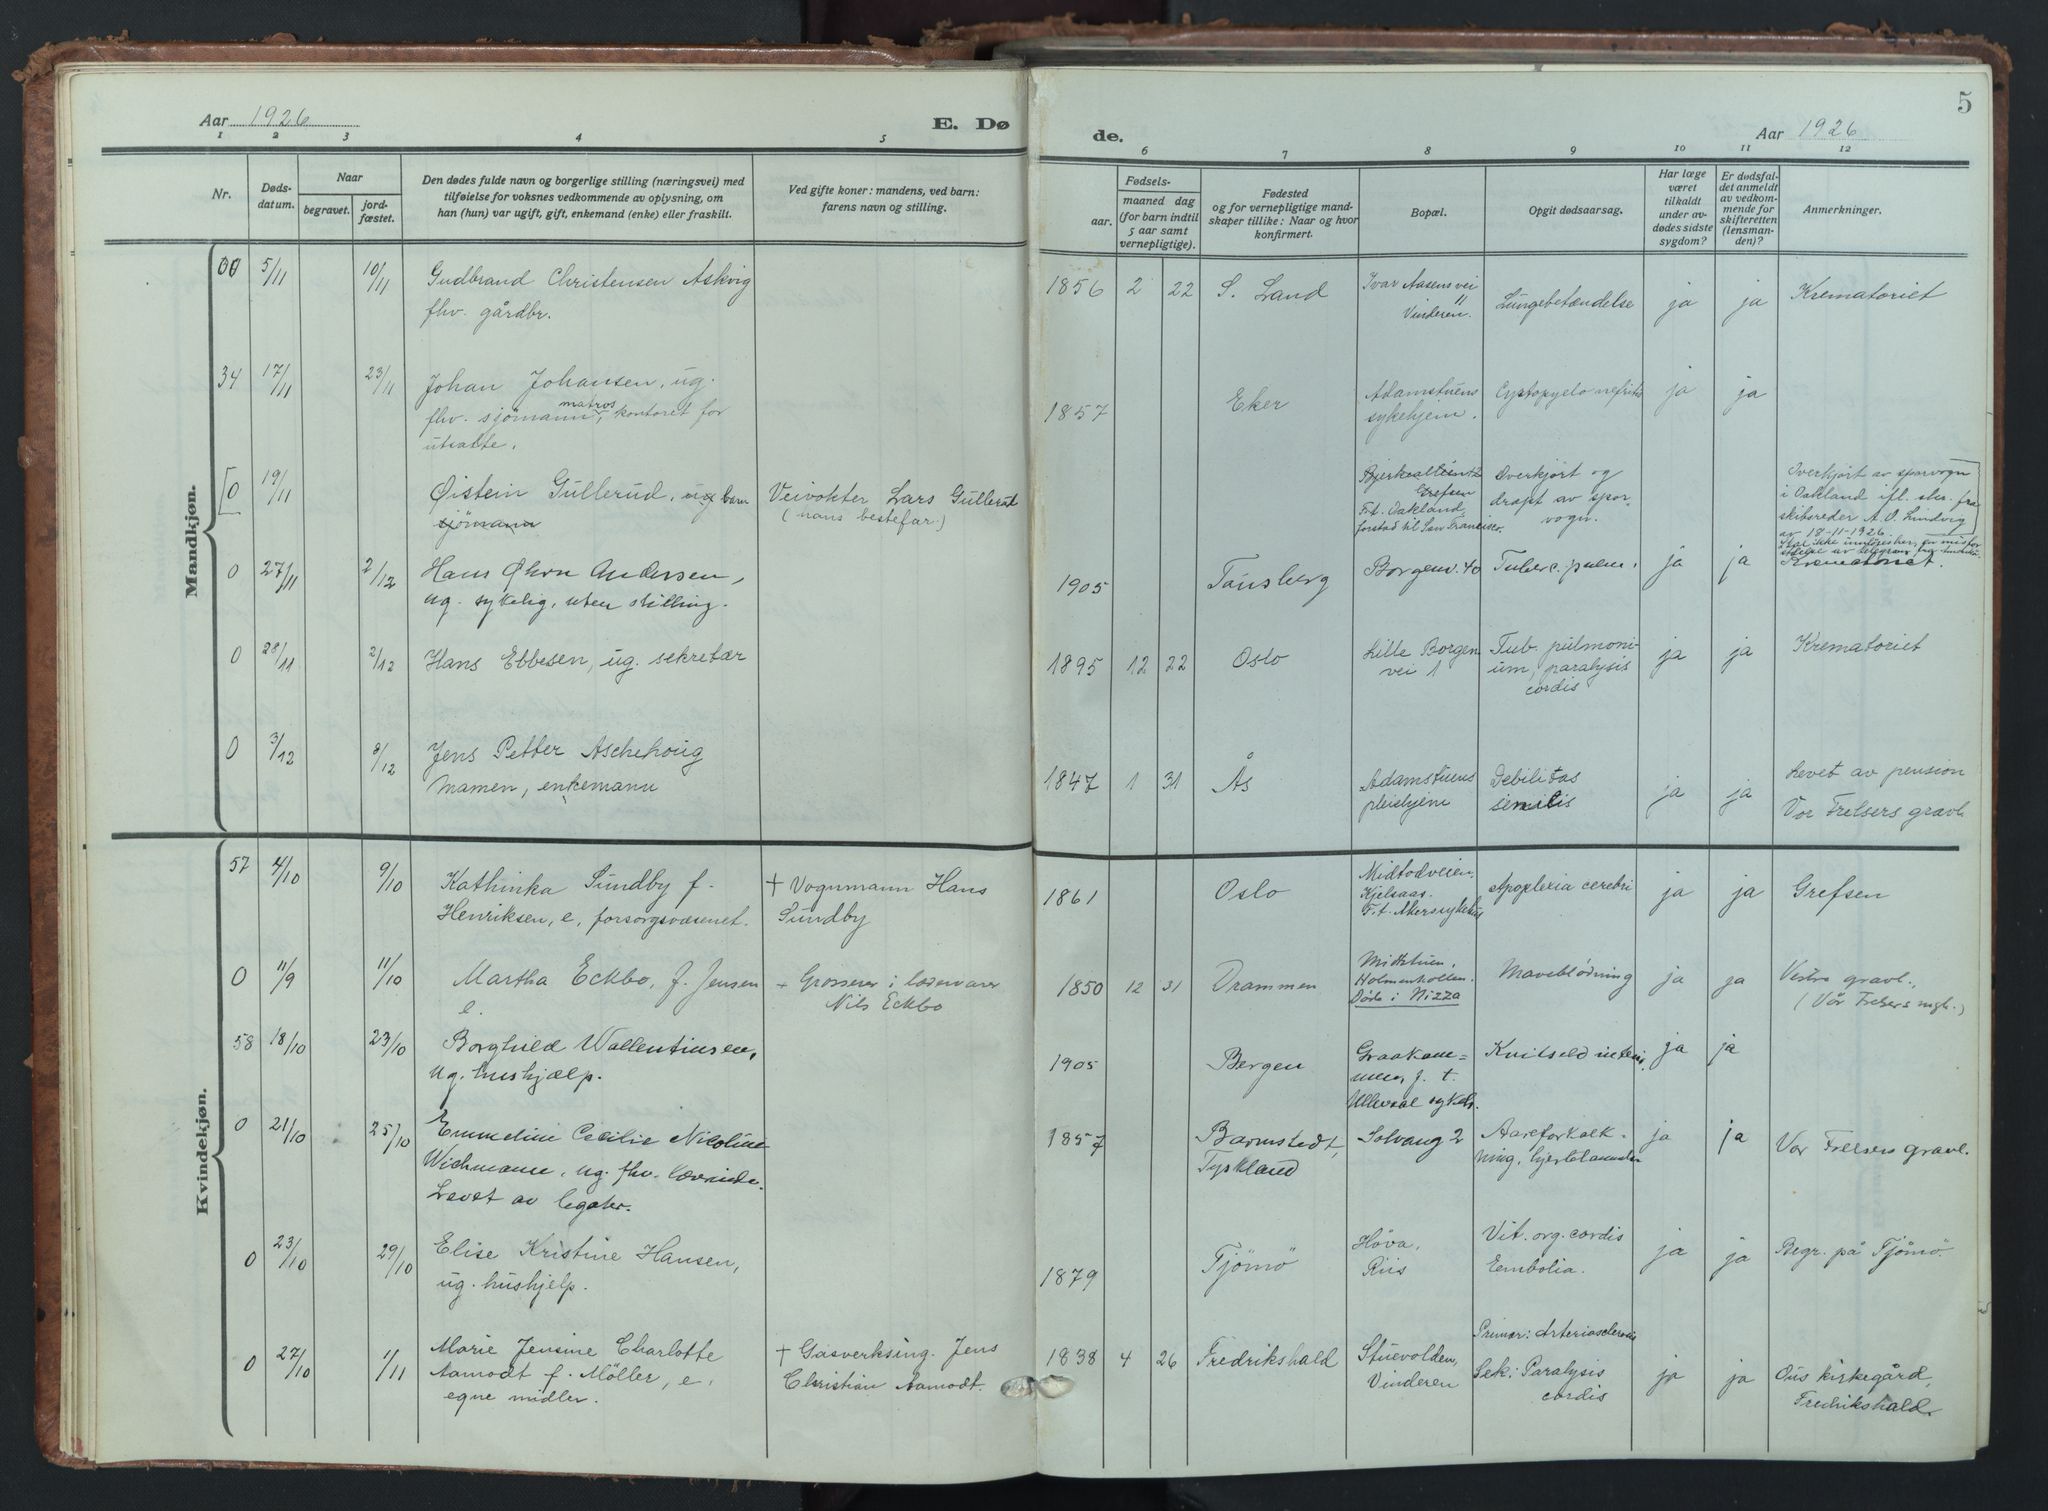 Aar 1926
E. Dø
de.
Aar 1926
5
1 2 3 4 5 6 7 8 9 10 11 12
Nr.
Døds-
datum.
Naar
begravet.
jord-
fæstet.
Den dødes fulde navn og borgerlige stilling (næringsvei) med
tilføielse for voksnes vedkommende av oplysning, om
han (hun) var ugift, gift, enkemand (enke) eller fraskilt.
Ved gifte koner: mandens, ved barn:
farens navn og stilling.
Fødsels-
aar.
maaned dag
(for barn indtil
5 aar samt
vernepligtige).
Fødested
og for vernepligtige mand-
skaper tillike: Naar og hvor
konfirmert.
Bopæl.
Opgit dødsaarsag.
Har læge
været
tilkaldt
under av-
dødes sidste
sygdom?
Er dødsfal-
det anmeldt
av vedkom-
mende for
skifteretten
(lensman-
den)?
Anmerkninger.
Mandkjøn.
0 5/11 10/11
Gudbrand Christensen Askvig
fhv. gårdbr.
1856 2 22 S. Land
Ivar Aasens vei
11
Vinderen.
Lungebetændelse ja ja Krematoriet
34 17/11 23/11
Johan Johansen, ug.
matros
fhv. sjömann, kontoret for
utsatte.
1857 Eker
Adamstuens
sykehjem.
Cystopyelo nefritis ja ja
[0 19/11
Øistein Gullerud, ug barn
sjömann
Veivokter Lars Gullerud
(hans bestefar)
Grefsen
F.t. Oakland,
forstad til San Francisco.
Overkjört og
dræpt av spor-
vogn.
Overkjört av sporvogn
i Oakland ifl. skr. fra
skibsreder A. O. Lindvig
av 18-11-1926.
0 27/11 2/12
Hans Øhrn Andersen,
ug. sykelig, uten stilling.
1905 Tønsberg Borgenv. 40 Tuberc. pulm. ja ja Krematoriet.
0 28/11 2/12
Hans Ebbesen, ug. sekretær
1895 12 22 Oslo
Lille Borgen
vei 1
Tub. pulmoni-
um, paralysis
cordis
ja ja Krematoriet
0 3/12 8/12
Jens Petter Aschehoug
Mamen, enkemann
1847 1 31 Ås
Adamstuens
pleiehjem
Debilitas
senilis
ja ja
Levet av pension
Vor Frelsers gravl.
Kvindekjøn.
57 4/10 9/10
Kathinka Sundby f.
Henriksen, e, forsorgsvæsenet.
+ Vognmann Hans
Sundby
1861 Oslo
Midtodveien,
Kjelsaas.
F.t. Akersykehus
Apoplexia cerebri ja ja Grefsen
0 11/9 11/10
Martha Eckbo, f. Jensen
e.
+ Grosserer i lædervarer
Nils Eckbo
1850 12 31 Drammen
Midtstuen,
Holmenkollen.
Døde i Nizza
Maveblødning ja ja
Vestre gravl.,
(Vår Frelsers mgl.)
58 18/10 23/10
Borghild Wallentinsen,
ug. hushjælp.
1905 Bergen
Graakam-
men, f. t.
Ullevaal sykeh.
ja ja
0 21/10 25/10
Emmeline Cecilie Nicoline
Wichmann, ug. fhv. lærerinde.
Levet av legater.
1857
Barmstedt,
Tyskland
Solvang 2
Aareforkalk-
ning, hjertelammelse
ja ja Vor Frelsers gravl.
0 23/10 29/10
Elise Kristine Hansen,
ug. hushjelp.
1879 Tjömö
Höva,
Riis
Vit. org. cordis
Embolia.
ja ja Begr. på Tjömö
0 27/10 1/11
Marie Jensine Charlotte
Aamodt f. Möller, e,
egne midler.
+ Gasverksing. Jens
Christian Aamodt.
1838 4 26 Fredrikshald
Stuevolden,
Vinderen
Primær: Arteriosclerosis
Sek: Paralysis
cordis
ja ja
Os kirkegård,
Fredrikshald.